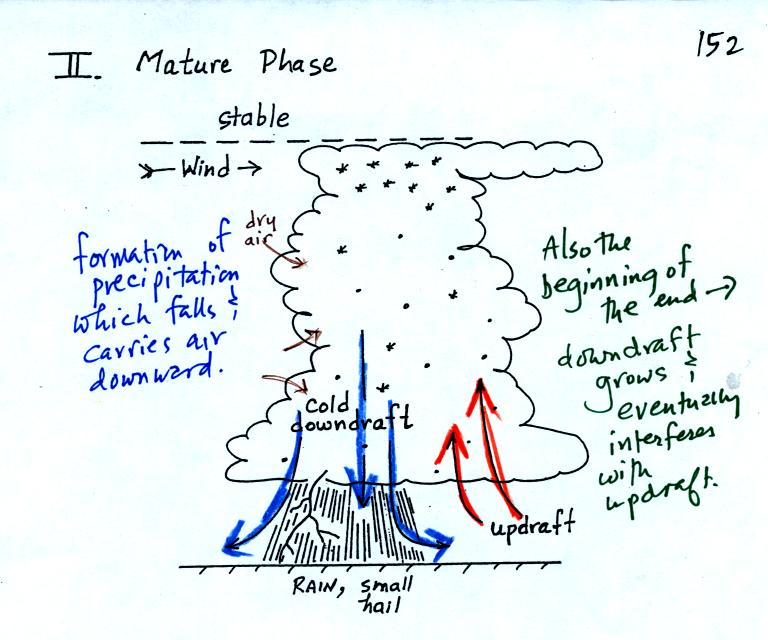 152
II. Mature Phase
stable
Wind
dry
air
formation of
precipitation
which falls &
carries air
downward.
Also the
beginning of
the end →
downdraft
grows &
eventually
interferes
with
updraft.
cold
downdraft
updraft
RAIN, small
hail